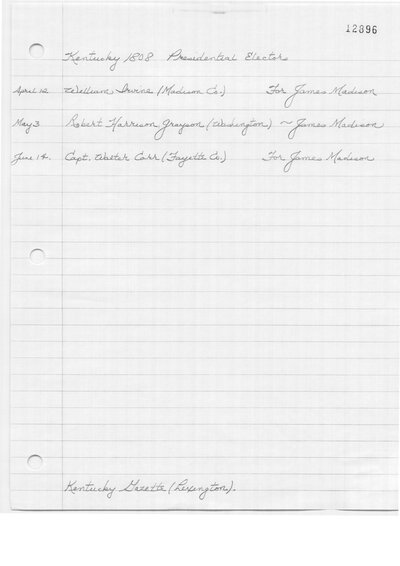 12896
Kentucky 1808 Presidential Electors
April 12 William Irvine (Madison Co.) For James Madison
May 3 Robert Harrison Grayson (Washington) ~ James Madison
June 14. Capt. Walter Carr (Fayette Co.) For James Madison
Kentucky Gazette (Lexington).